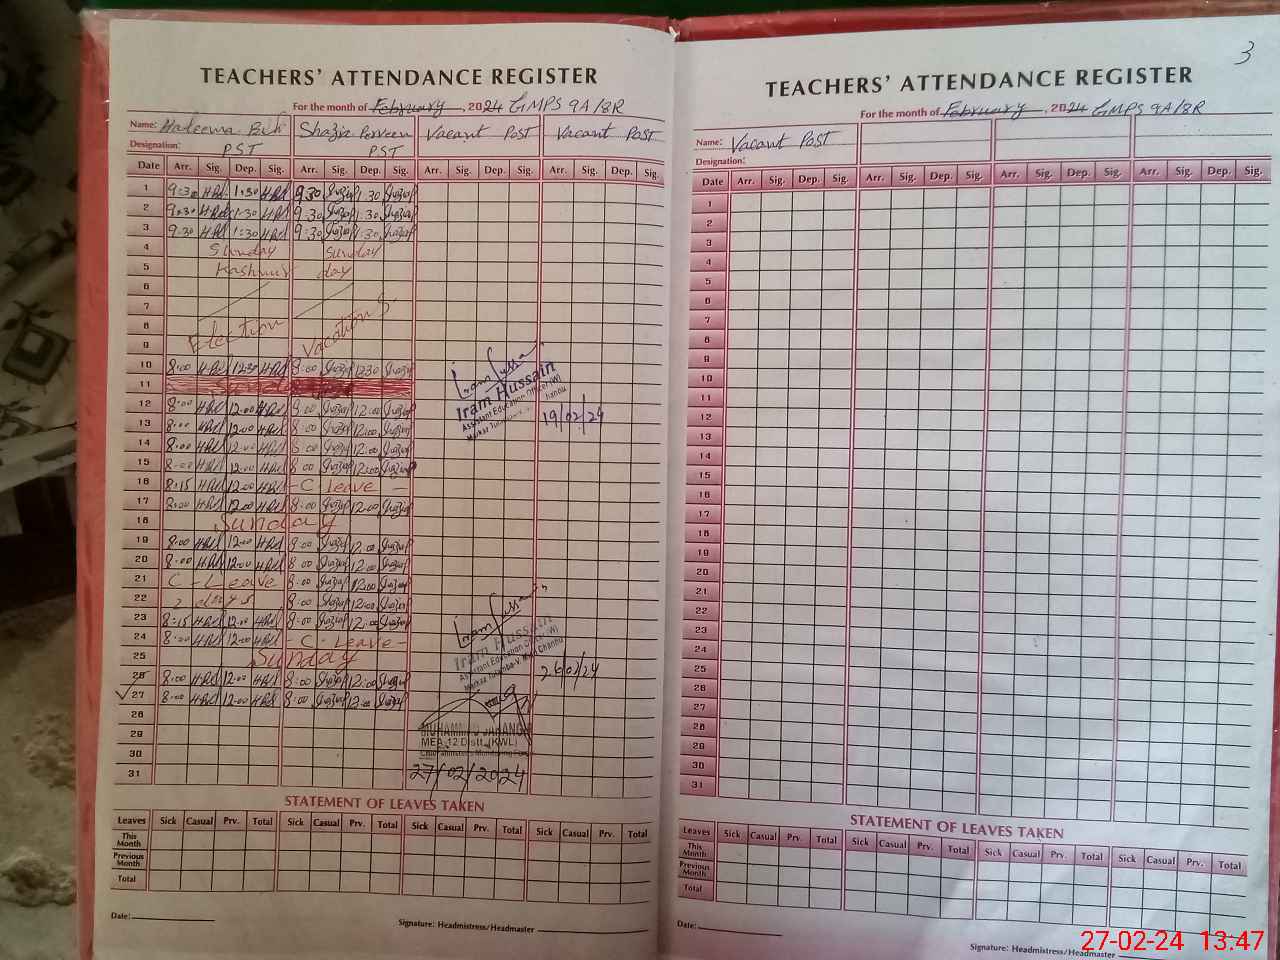 TEACHERS' ATTENDANCE REGISTER
For the month of February, 2024 GMPS 9A/8R
Name: Haleema Bibi Shazia Perveen Vacant Post Vacant Post
Designation: PST PST
Date Arr. Sig. Dep. Sig. Arr. Sig. Dep. Sig. Arr. Sig. Dep. Sig. Arr. Sig. Dep. Sig.
1 9:30 1:30 9:30 1:30
2 9:30 1:30 9:30 1:30
3 9:30 1:30 9:30 1:30
4 Sunday Sunday
5 Kashmir day
6
7
8 Election Vacations
9
10 8:00 12:30 8:00 12:30
11 Sunday
12 8:00 12:00 8:00 12:00
13 8:00 12:00 8:00 12:00
14 8:00 12:00 8:00 12:00
15 8:00 12:00 8:00 12:00
16 8:15 12:00 -C-Leave-
17 8:00 12:00 8:00 12:00
18 Sunday
19 8:00 12:00 8:00 12:00
20 8:00 12:00 8:00 12:00
21 C-Leave 8:00 12:00
22 2 days 8:00 12:00
23 8:15 12:00 8:00 12:00
24 8:00 12:00 -C-Leave-
25 Sunday
26 8:00 12:00 8:00 12:00
27 8:00 12:00 8:00 12:00
28
29
30
31
Iram Hussain
Assistant Education Officer (W)
19/02/24
Iram Hussain
Assistant Education Officer (W)
26/02/24
MUHAMMAD JAHANGIR
MEA,12 Distt.(KWL)
27/02/2024
STATEMENT OF LEAVES TAKEN
Leaves Sick Casual Prv. Total Sick Casual Prv. Total Sick Casual Prv. Total Sick Casual Prv. Total
This Month
Previous Month
Total
Date:
Signature: Headmistress/Headmaster
3
TEACHERS' ATTENDANCE REGISTER
For the month of February, 2024 GMPS 9A/8R
Name: Vacant Post
Designation:
Date Arr. Sig. Dep. Sig. Arr. Sig. Dep. Sig. Arr. Sig. Dep. Sig. Arr. Sig. Dep. Sig.
1
2
3
4
5
6
7
8
9
10
11
12
13
14
15
16
17
18
19
20
21
22
23
24
25
26
27
28
29
30
31
STATEMENT OF LEAVES TAKEN
Leaves Sick Casual Prv. Total Sick Casual Prv. Total Sick Casual Prv. Total Sick Casual Prv. Total
This Month
Previous Month
Total
Date:
Signature: Headmistress/Headmaster
27-02-24 13:47